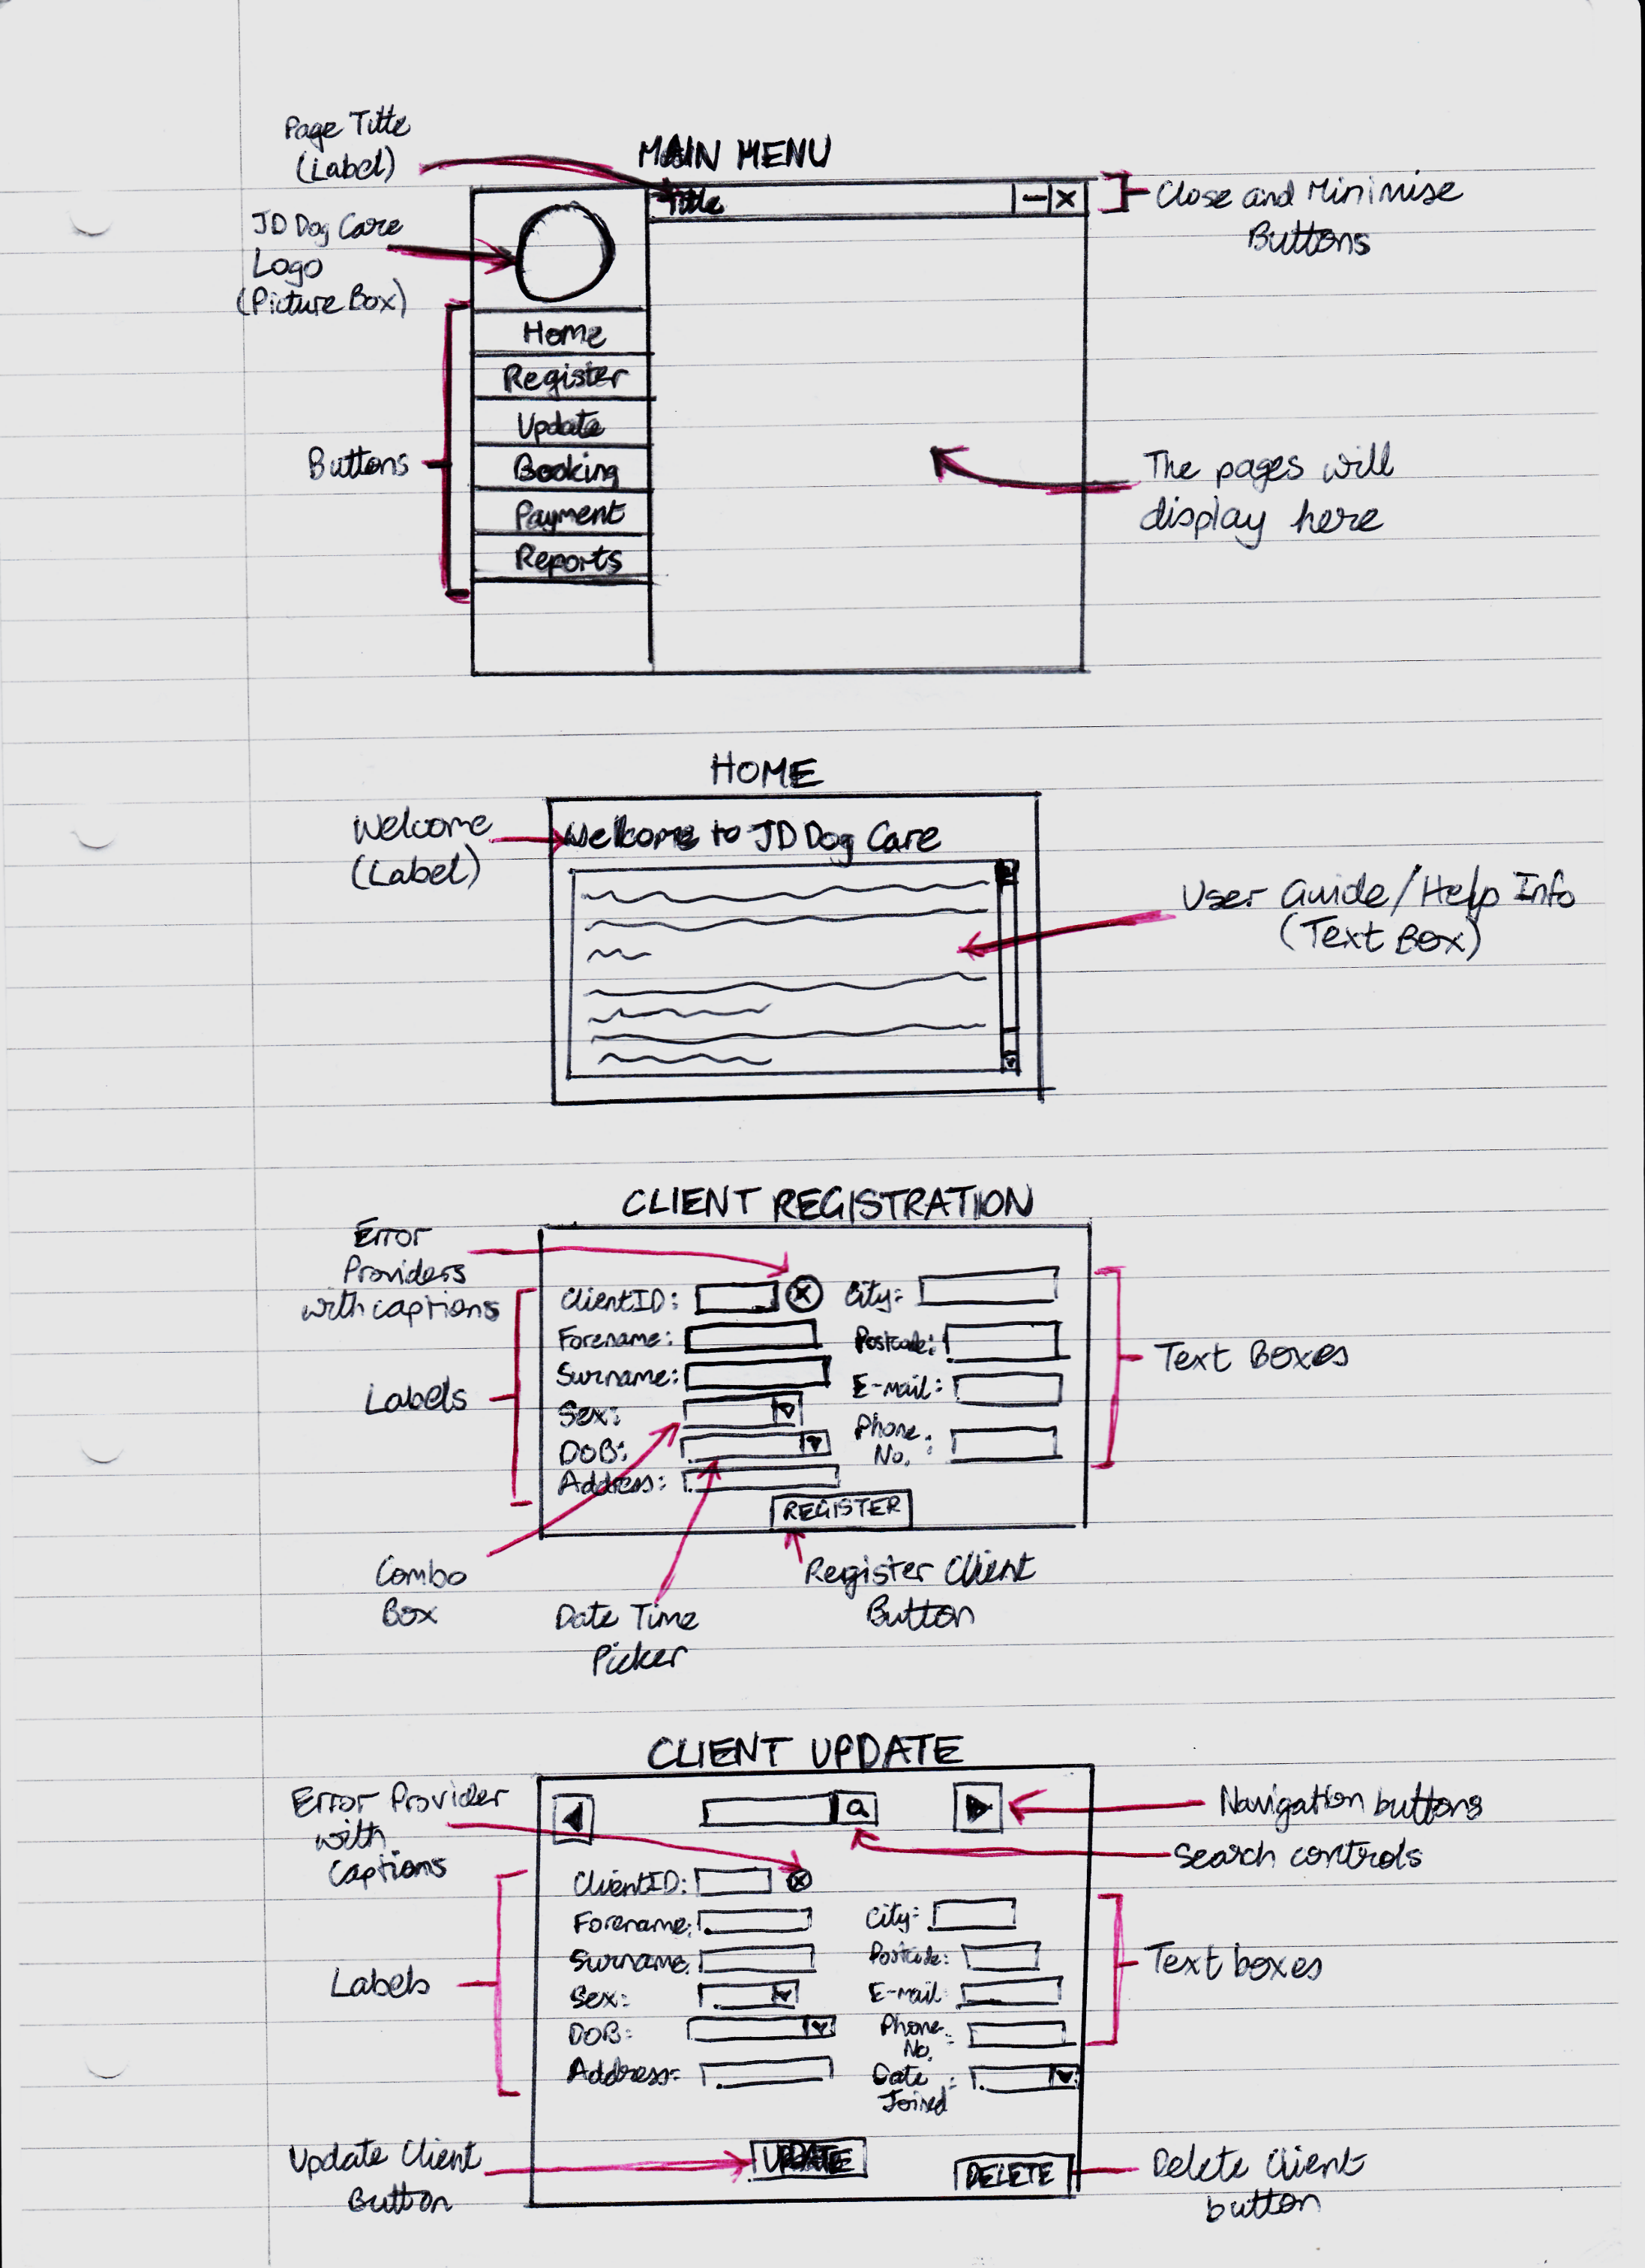 MAIN MENU
Page Title
(Label)
Title
Close and Minimise
Buttons
JD Dog Care
Logo
(Picture Box)
Home
Register
Update
Booking
Payment
Reports
Buttons
The pages will
display here
HOME
Welcome
(Label)
Welcome to JD Dog Care
User Guide/Help Info
(Text Box)
CLIENT REGISTRATION
Error
Providers
with captions
Labels
ClientID:
Forename:
Surname:
Sex:
DOB:
Address:
City:
Postcode:
E-mail:
Phone
No.:
REGISTER
Text Boxes
Combo
Box
Date Time
Picker
Register Client
Button
CLIENT UPDATE
Error Provider
with
Captions
Navigation buttons
Search controls
Labels
ClientID:
Forename:
Surname:
Sex:
DOB:
Address:
City:
Postcode:
E-mail:
Phone
No.:
Date
Joined:
Text boxes
UPDATE
DELETE
Update Client
Button
Delete Client
button